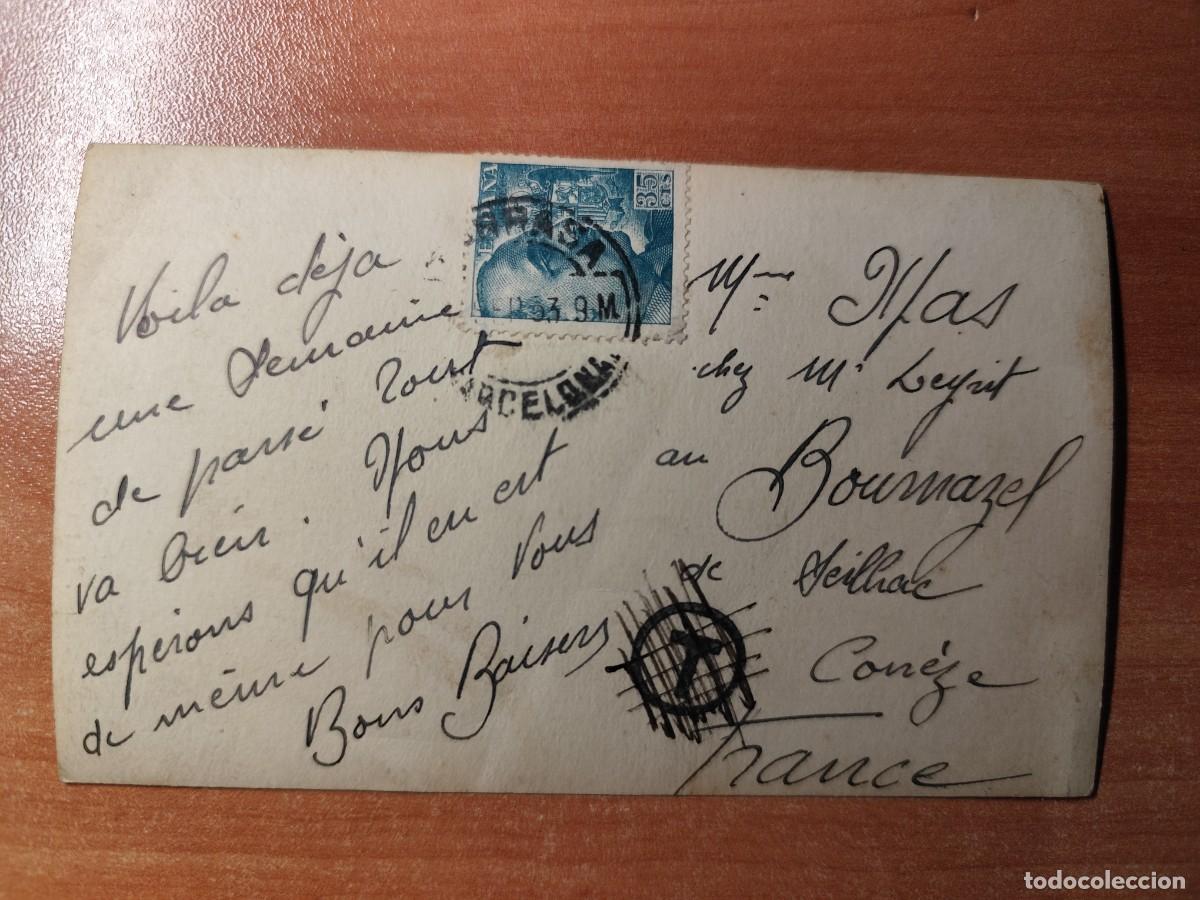 Voila déja
une Semaine
de passé Tout
va bien. Nous
espérons qu'il en est
de même pour vous
Bons Baisers
35 CTS
9.M
Mme Mas
chez Mr Leyrit
au Bournazel
de Seilhac
Corrèze
France
T
todocoleccion